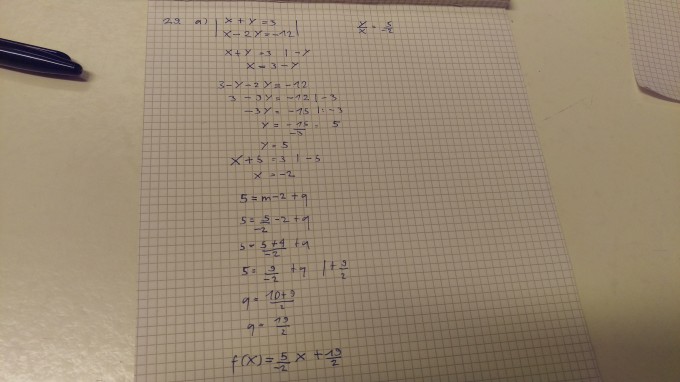 29 a) | x + y = 3
| x - 2y = -12
y/x = 5/-2
x + y = 3 | -y
x = 3 - y
3 - y - 2y = -12
3 - 3y = -12 | -3
-3y = -15 | : -3
y = -15/-3 = 5
y = 5
x + 5 = 3 | -5
x = -2
5 = m - 2 + q
5 = 5/-2 - 2 + q
5 = 5+4/-2 + q
5 = 9/-2 + q | + 9/2
q = 10+9/2
q = 19/2
f(x) = 5/-2 x + 19/2